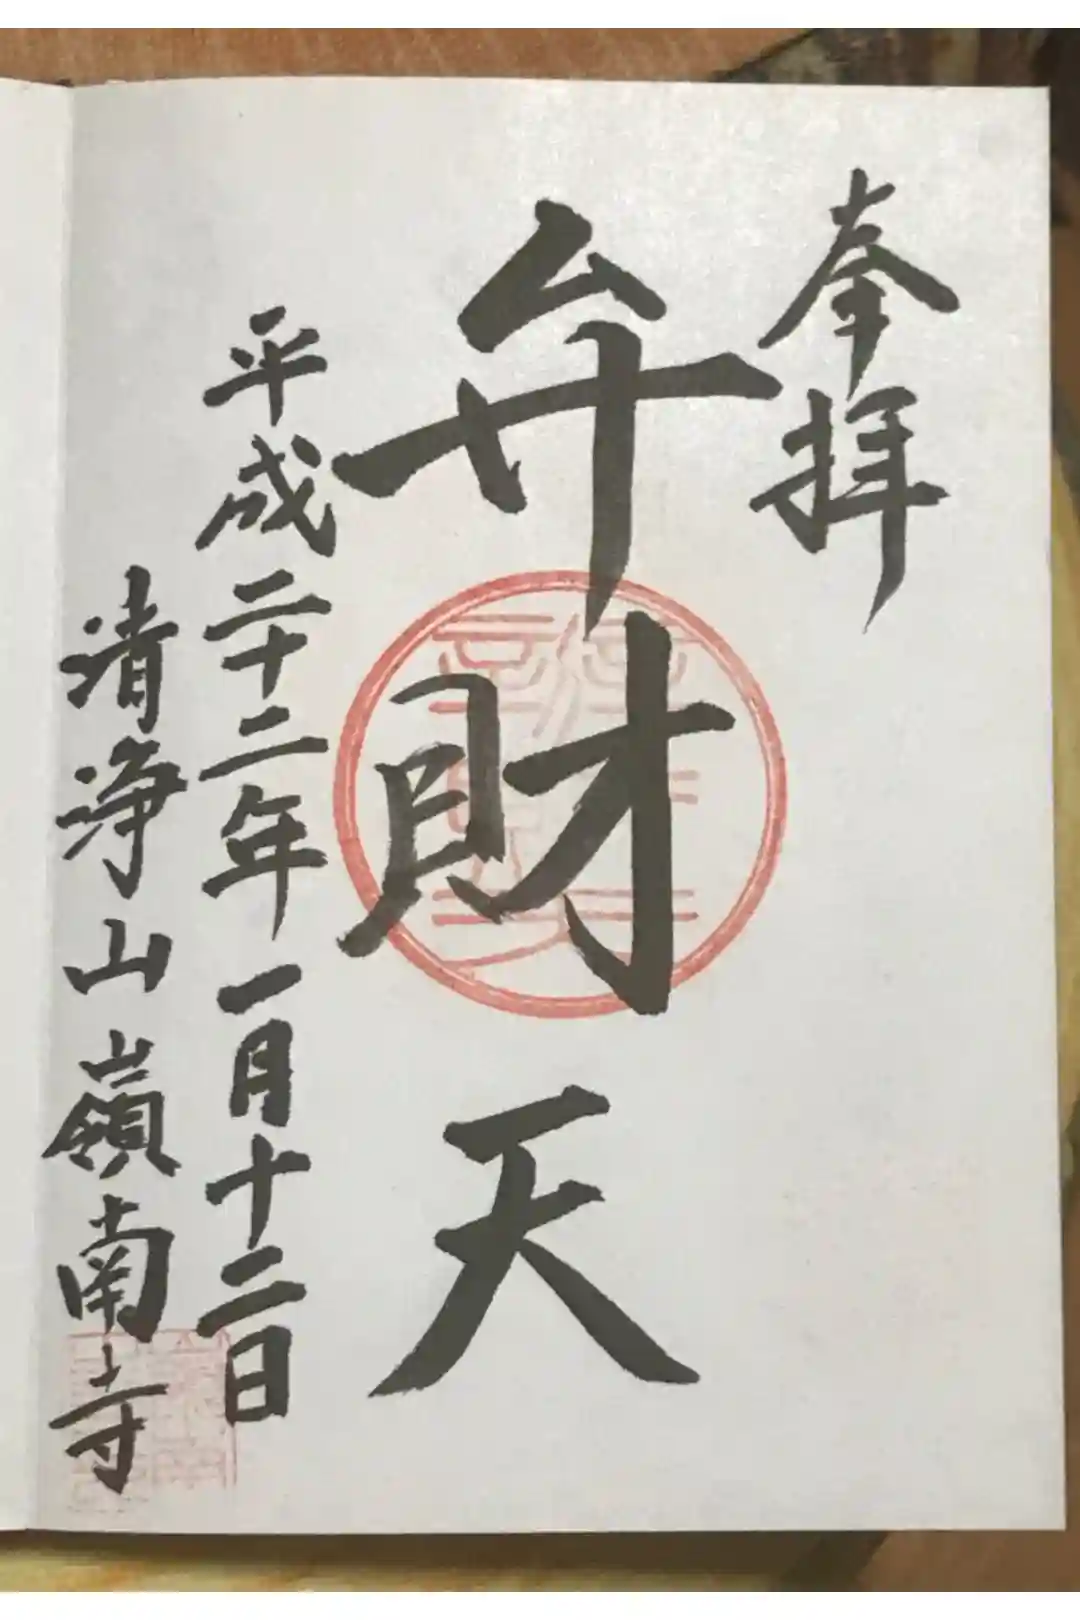 奉拝
弁財天
平成二十二年一月十二日
清浄山嶺南寺